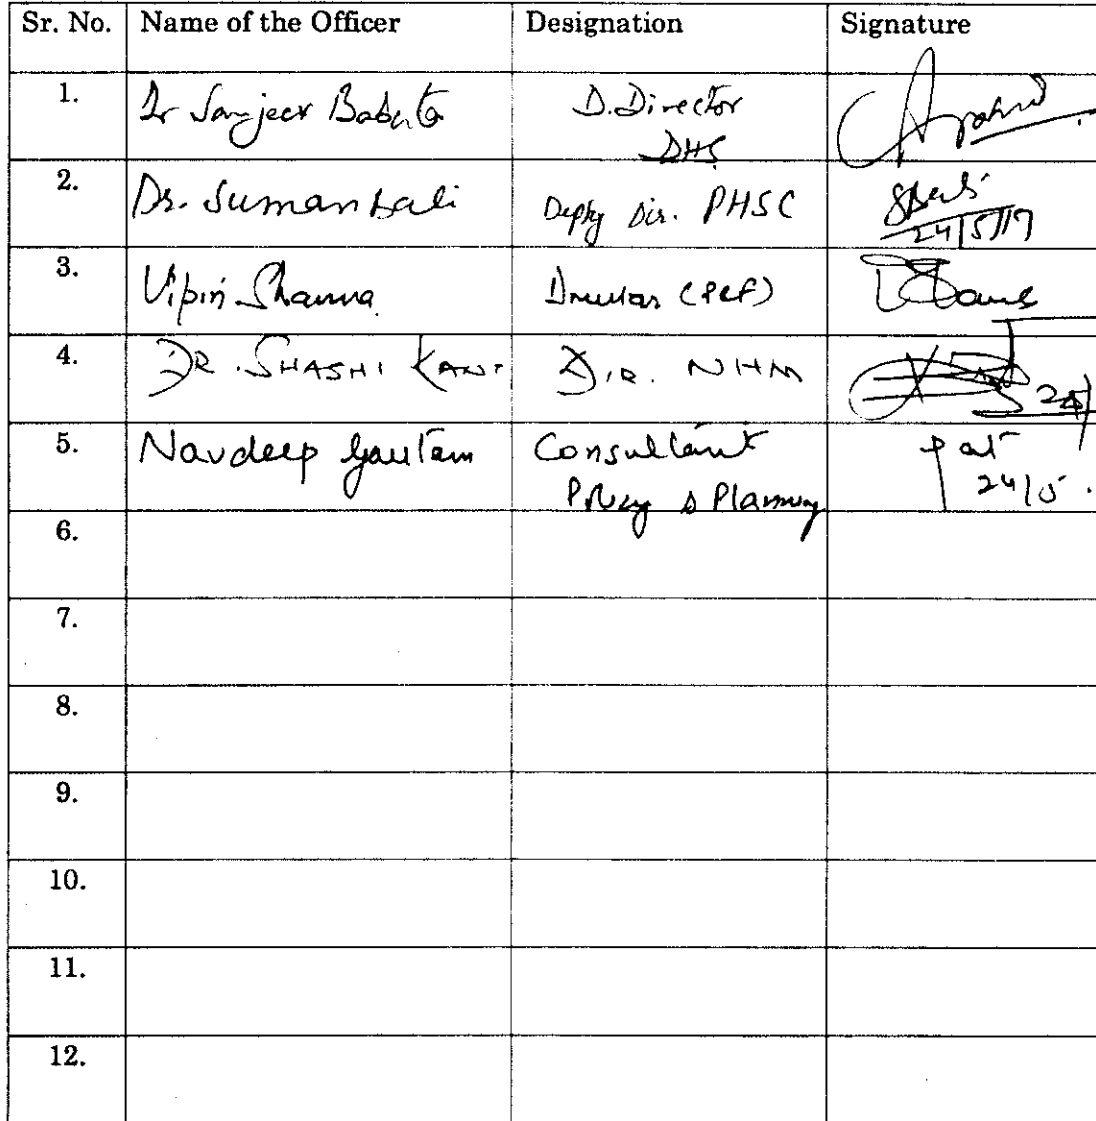 Sr. No. Name of the Officer Designation Signature
1. Dr Sanjeev Babuta D.Director
DHS
2. Dr. Suman Bali Depty Dir. PHSC
24/5/17
3. Vipin Sharma Director (P&F)
4. DR. SHASHI KANT DIR. NHM
24/
5. Navdeep Gautam Consultant
Policy & Planning 24/5.
6.
7.
8.
9.
10.
11.
12.